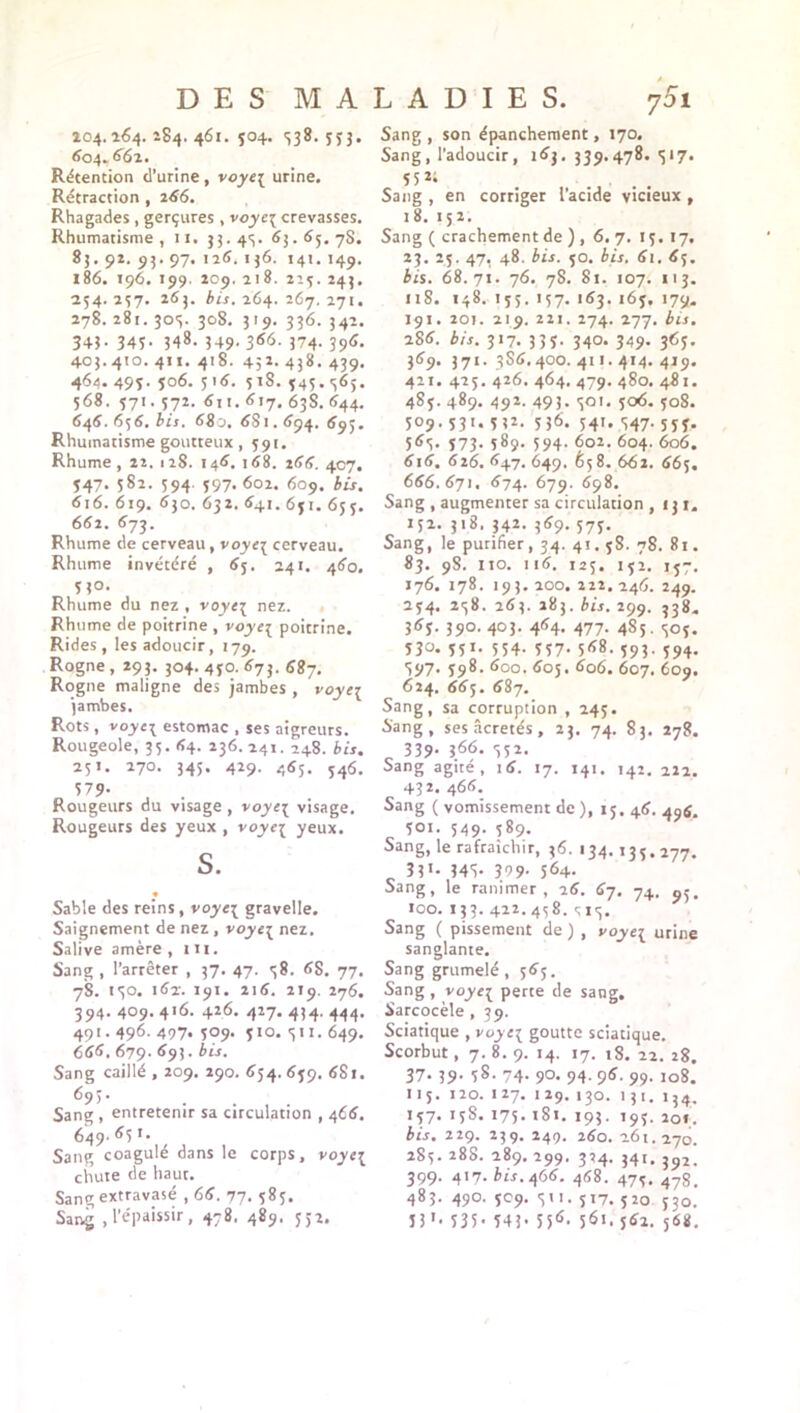 DES MALADIES. 761
204. 264. 284. 461. 504. 538. 553.
604. 662.
Rétention d'urine, voyez urine.
Rétraction, 266.
Rhagades, gerçures, voyez crevasses.
Rhumatisme, 11. 33. 45. 63. 65. 78.
83. 92. 93. 97. 126. 136. 141. 149.
186. 196. 199. 209. 218. 225. 243.
254. 257. 263. bis. 264. 267. 271.
278. 281. 305. 308. 319. 336. 342.
343. 345. 348. 349. 366. 374. 396.
403. 410. 411. 418. 432. 438. 439.
464. 495. 506. 516. 518. 545. 565.
568. 571. 572. 611. 617. 638. 644.
646. 656. bis. 680. 681. 694. 695.
Rhumatisme goutteux, 591.
Rhume, 22. 128. 146. 168. 266. 407.
547. 582. 594. 597. 602. 609. bis.
616. 619. 630. 632. 641. 651. 655.
662. 673.
Rhume de cerveau, voyez cerveau.
Rhume invétéré, 65. 241. 460.
530.
Rhume du nez, voyez nez.
Rhume de poitrine, voyez poitrine.
Rides, les adoucir, 179.
Rogne, 293. 304. 450. 673. 687.
Rogne maligne des jambes, voyez
jambes.
Rots, voyez estomac, ses aigreurs.
Rougeole, 35. 64. 236. 241. 248. bis.
251. 270. 345. 429. 465. 546.
579.
Rougeurs du visage, voyez visage.
Rougeurs des yeux, voyez yeux.
S.
Sable des reins, voyez gravelle.
Saignement de nez, voyez nez.
Salive amère, 111.
Sang, l'arrêter, 37. 47. 58. 68. 77.
78. 150. 162. 191. 216. 219. 276.
394. 409. 416. 426. 427. 434. 444.
491. 496. 497. 509. 510. 511. 649.
666. 679. 693. bis.
Sang caillé, 209. 290. 654. 659. 681.
695.
Sang, entretenir sa circulation, 466.
649. 651.
Sang coagulé dans le corps, voyez
chute de haut.
Sang extravasé, 66. 77. 585.
Sang, l'épaissir, 478. 489. 552.
Sang, son épanchement, 170.
Sang, l'adoucir, 163. 339. 478. 517.
552.
Sang, en corriger l'acide vicieux,
18. 152.
Sang (crachement de), 6. 7. 15. 17.
23. 25. 47. 48. bis. 50. bis. 61. 65.
bis. 68. 71. 76. 78. 81. 107. 113.
118. 148. 155. 157. 163. 165. 179.
191. 201. 219. 221. 274. 277. bis.
286. bis. 317. 335. 340. 349. 365.
369. 371. 386. 400. 411. 414. 419.
421. 425. 426. 464. 479. 480. 481.
485. 489. 492. 493. 501. 506. 508.
509. 531. 532. 536. 541. 547. 555.
565. 573. 589. 594. 602. 604. 606.
616. 626. 647. 649. 658. 662. 665.
666. 671. 674. 679. 698.
Sang, augmenter sa circulation, 131.
152. 318. 342. 369. 575.
Sang, le purifier, 34. 41. 58. 78. 81.
83. 98. 110. 116. 125. 152. 157.
176. 178. 193. 200. 222. 246. 249.
254. 258. 263. 283. bis. 299. 338.
365. 390. 403. 464. 477. 485. 505.
530. 551. 554. 557. 568. 593. 594.
597. 598. 600. 605. 606. 607. 609.
624. 665. 687.
Sang, sa corruption, 245.
Sang, ses âcretés, 23. 74. 83. 278.
339. 366. 552.
Sang agité, 16. 17. 141. 142. 222.
432. 466.
Sang (vomissement de), 15. 46. 496.
501. 549. 589.
Sang, le rafraichir, 36. 134. 135. 277.
331. 345. 399. 564.
Sang, le ranimer, 26. 67. 74. 95.
100. 133. 422. 458. 515.
Sang (pissement de), voyez urine
sanglante.
Sang grumelé, 565.
Sang, voyez perte de sang.
Sarcocèle, 39.
Sciatique, voyez goutte sciatique.
Scorbut, 7. 8. 9. 14. 17. 18. 22. 28.
37. 39. 58. 74. 90. 94. 96. 99. 108.
115. 120. 127. 129. 130. 131. 134.
157. 158. 175. 181. 193. 195. 201.
bis. 229. 239. 249. 260. 261. 270.
285. 288. 289. 299. 334. 341. 392.
399. 417. bis. 466. 468. 475. 478.
483. 490. 509. 511. 517. 520. 530.
531. 535. 543. 556. 561. 562. 568.